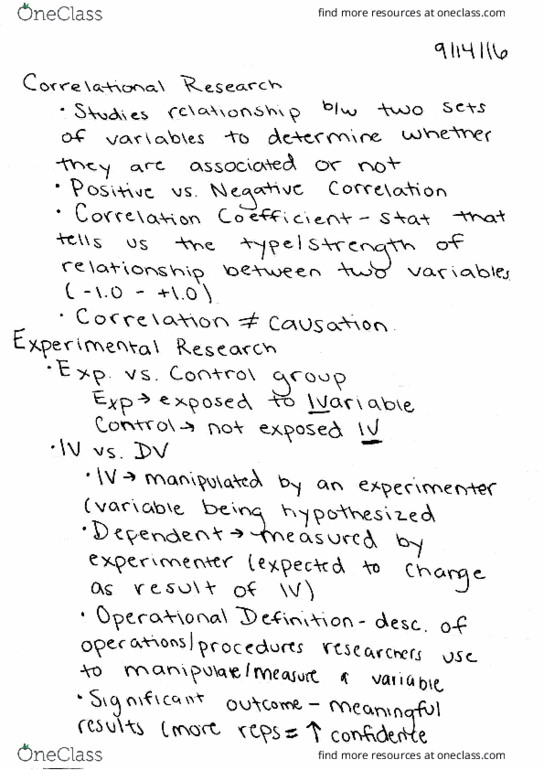 OneClass
find more resources at oneclass.com
9/14/16
Correlational Research
· Studies relationship b/w two sets
of variables to determine whether
they are associated or not
· Positive vs. Negative Correlation
· Correlation Coefficient - stat that
tells us the type/strength of
relationship between two variables
(-1.0 - +1.0)
· Correlation ≠ Causation.
Experimental Research
· Exp. vs. Control group
Exp → exposed to IVariable
Control → not exposed IV
· IV vs. DV
· IV → manipulated by an experimenter
(variable being hypothesized
· Dependent → measured by
experimenter (expected to change
as result of IV)
· Operational Definition - desc. of
operations/procedures researchers use
to manipulate/measure a variable
· Significant outcome - meaningful
results (more reps = ↑ confidence
OneClass
find more resources at oneclass.com